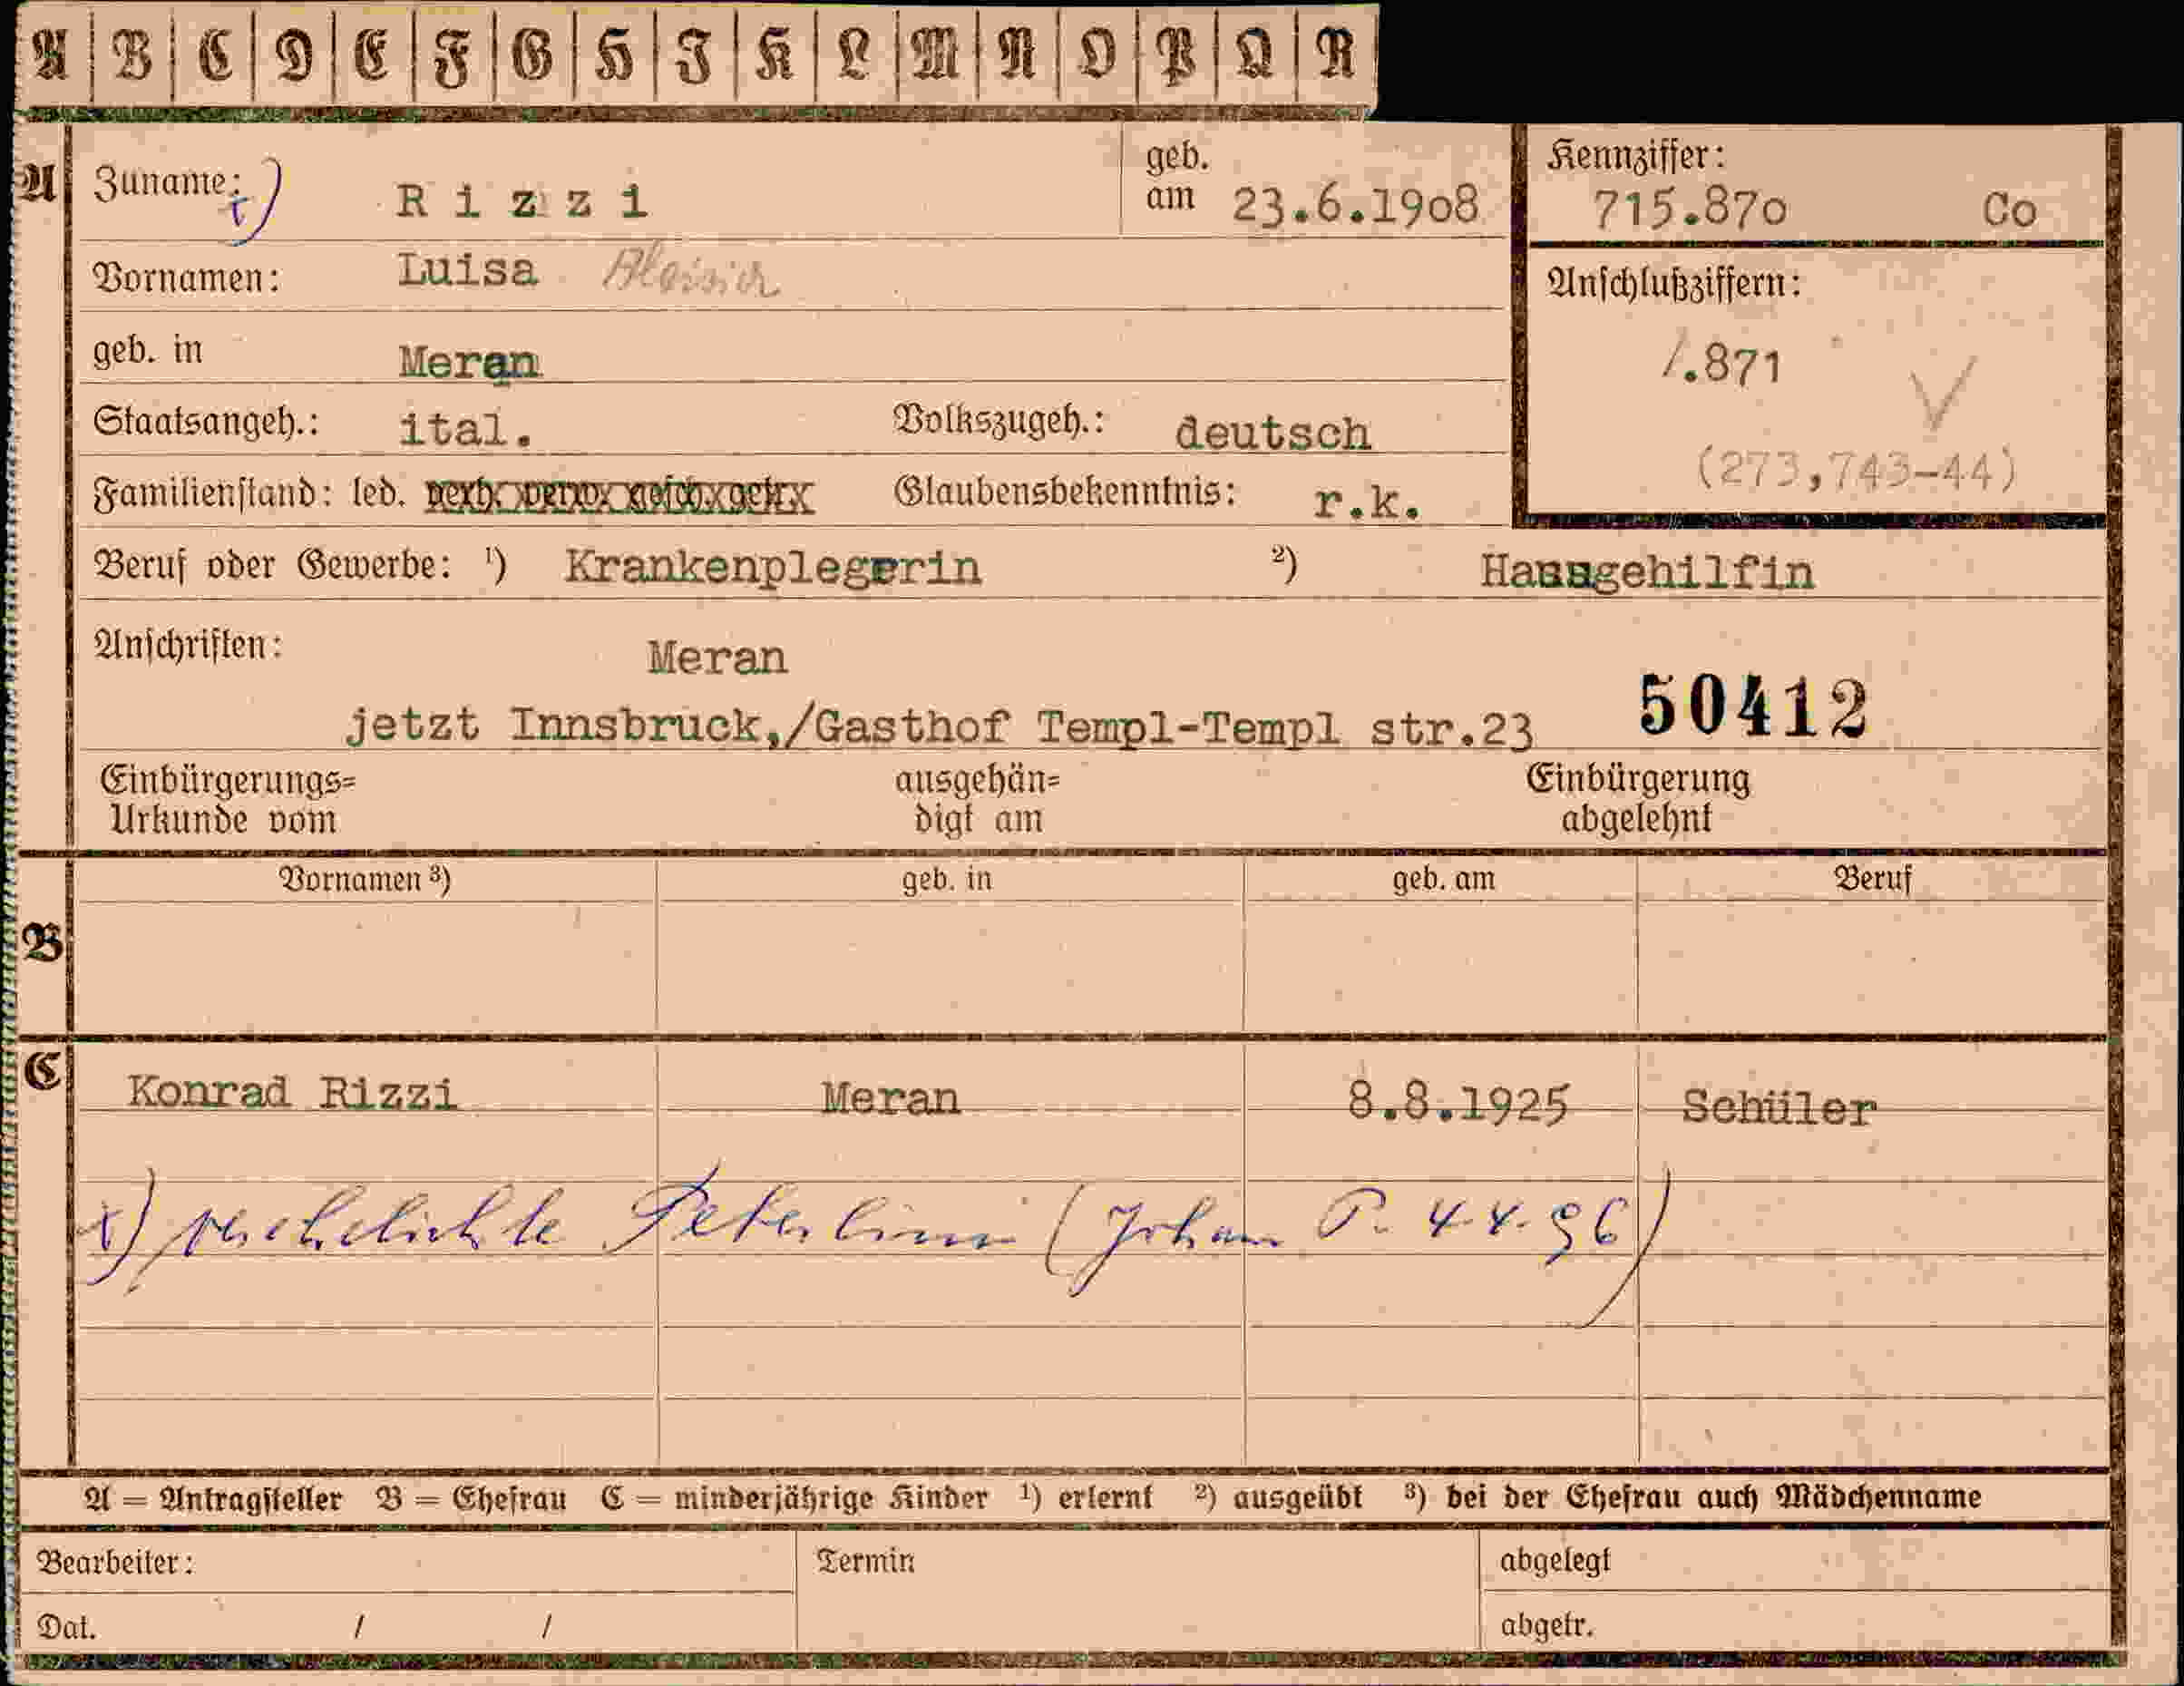 A B C D E F G H I K L M N O P Q R
A Zuname: x) Rizzi geb. am 23.6.1908
Kennziffer: 715.870 Co
Vornamen: Luisa
Anschlußziffern:
/.871
(273,743-44)
geb. in Meran
Staatsangeh.: ital. Volkszugeh.: deutsch
Familienstand: led. verh. verw. gesch. getr. Glaubensbekenntnis: r.k.
Beruf oder Gewerbe: ¹) Krankenplegerin ²) Hausgehilfin
Anschriften: Meran
jetzt Innsbruck,/Gasthof Templ-Templ str.23 50412
Einbürgerungs=
Urkunde vom
ausgehän=
digt am
Einbürgerung
abgelehnt
B Vornamen ³) geb. in geb. am Beruf
C Konrad Rizzi Meran 8.8.1925 Schüler
x) verehelichte Peterlini (Johann P. 4.4.96)
A = Antragsteller B = Ehefrau C = minderjährige Kinder ¹) erlernt ²) ausgeübt ³) bei der Ehefrau auch Mädchenname
Bearbeiter: Termin abgelegt
Dat. / / abgetr.